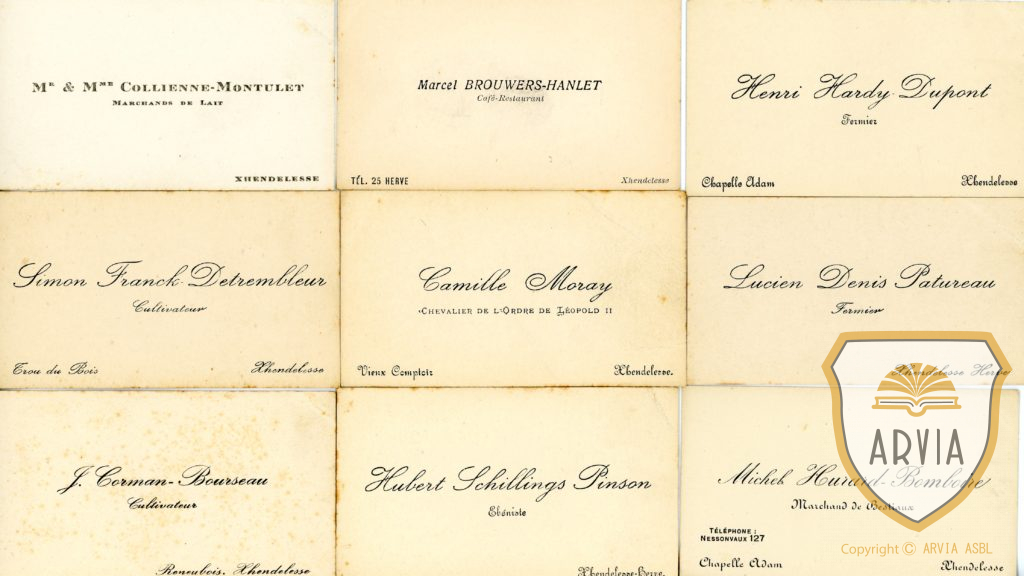 Mr & Mme Collienne-Montulet
Marchands de Lait
Xhendelesse
Marcel BROUWERS-HANLET
Café-Restaurant
TÉL. 25 HERVE
Xhendelesse
Henri Hardy-Dupont
Fermier
Chapelle Adam
Xhendelesse
Simon Franck-Detrembleur
Cultivateur
Trou du Bois
Xhendelesse
Camille Moray
Chevalier de l'Ordre de Léopold II
Vieux Comptoir
Xhendelesse.
Lucien Denis Patureau
Fermier
Xhendelesse Herve
J. Corman-Bourseau
Cultivateur
Reneubois. Xhendelesse
Hubert Schillings Pinson
Ebéniste
Xhendelesse-Herve.
Michel
Marchand de Bestiaux
TÉLÉPHONE :
NESSONVAUX 127
Chapelle Adam
Xhendelesse
ARVIA
Copyright © ARVIA ASBL